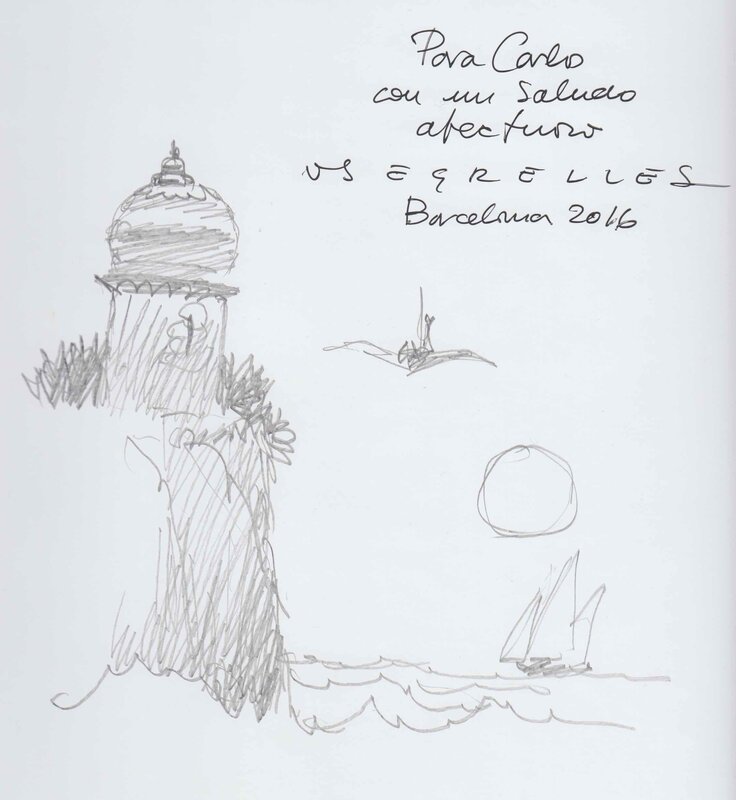 Para Carlo
con un saludo
afectuoso
VSEGRELLES
Barcelona 2016